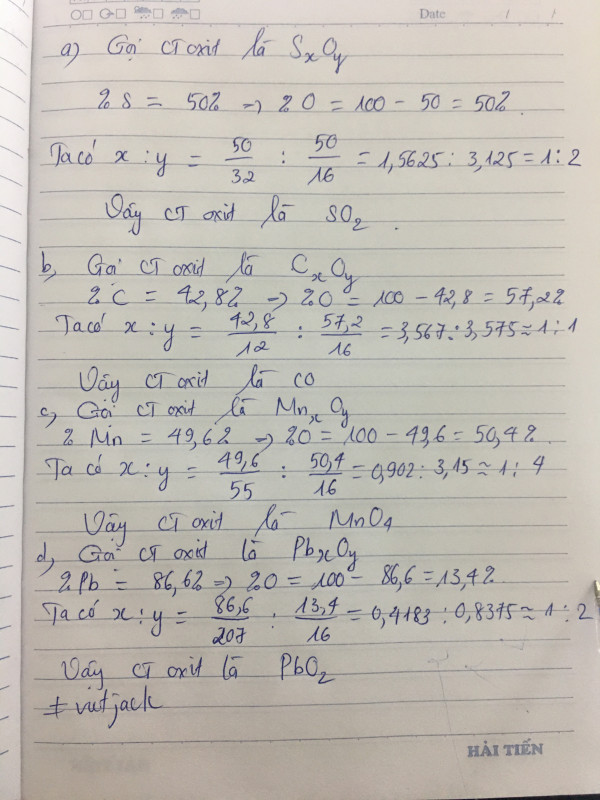 Date / /
a) Gọi CT oxit là SxOy
% S = 50% → % O = 100 - 50 = 50%.
Ta có x : y = 50/32 : 50/16 = 1,5625 : 3,125 = 1 : 2
Vậy CT oxit là SO2.
b, Gọi CT oxit là CxOy
% C = 42,8% → %O = 100 - 42,8 = 57,2%
Ta có x : y = 42,8/12 : 57,2/16 = 3,567 : 3,575 ≈ 1 : 1
Vậy CT oxit là CO
c, Gọi CT oxit là MnxOy
% Mn = 49,6% → %O = 100 - 49,6 = 50,4%.
Ta có x : y = 49,6/55 : 50,4/16 = 0,902 : 3,15 ≈ 1 : 4
Vậy CT oxit là MnO4
d, Gọi CT oxit là PbxOy
%Pb = 86,6% → %O = 100 - 86,6 = 13,4%
Ta có x : y = 86,6/207 : 13,4/16 = 0,4183 : 0,8375 ≈ 1 : 2
Vậy CT oxit là PbO2
HẢI TIẾN